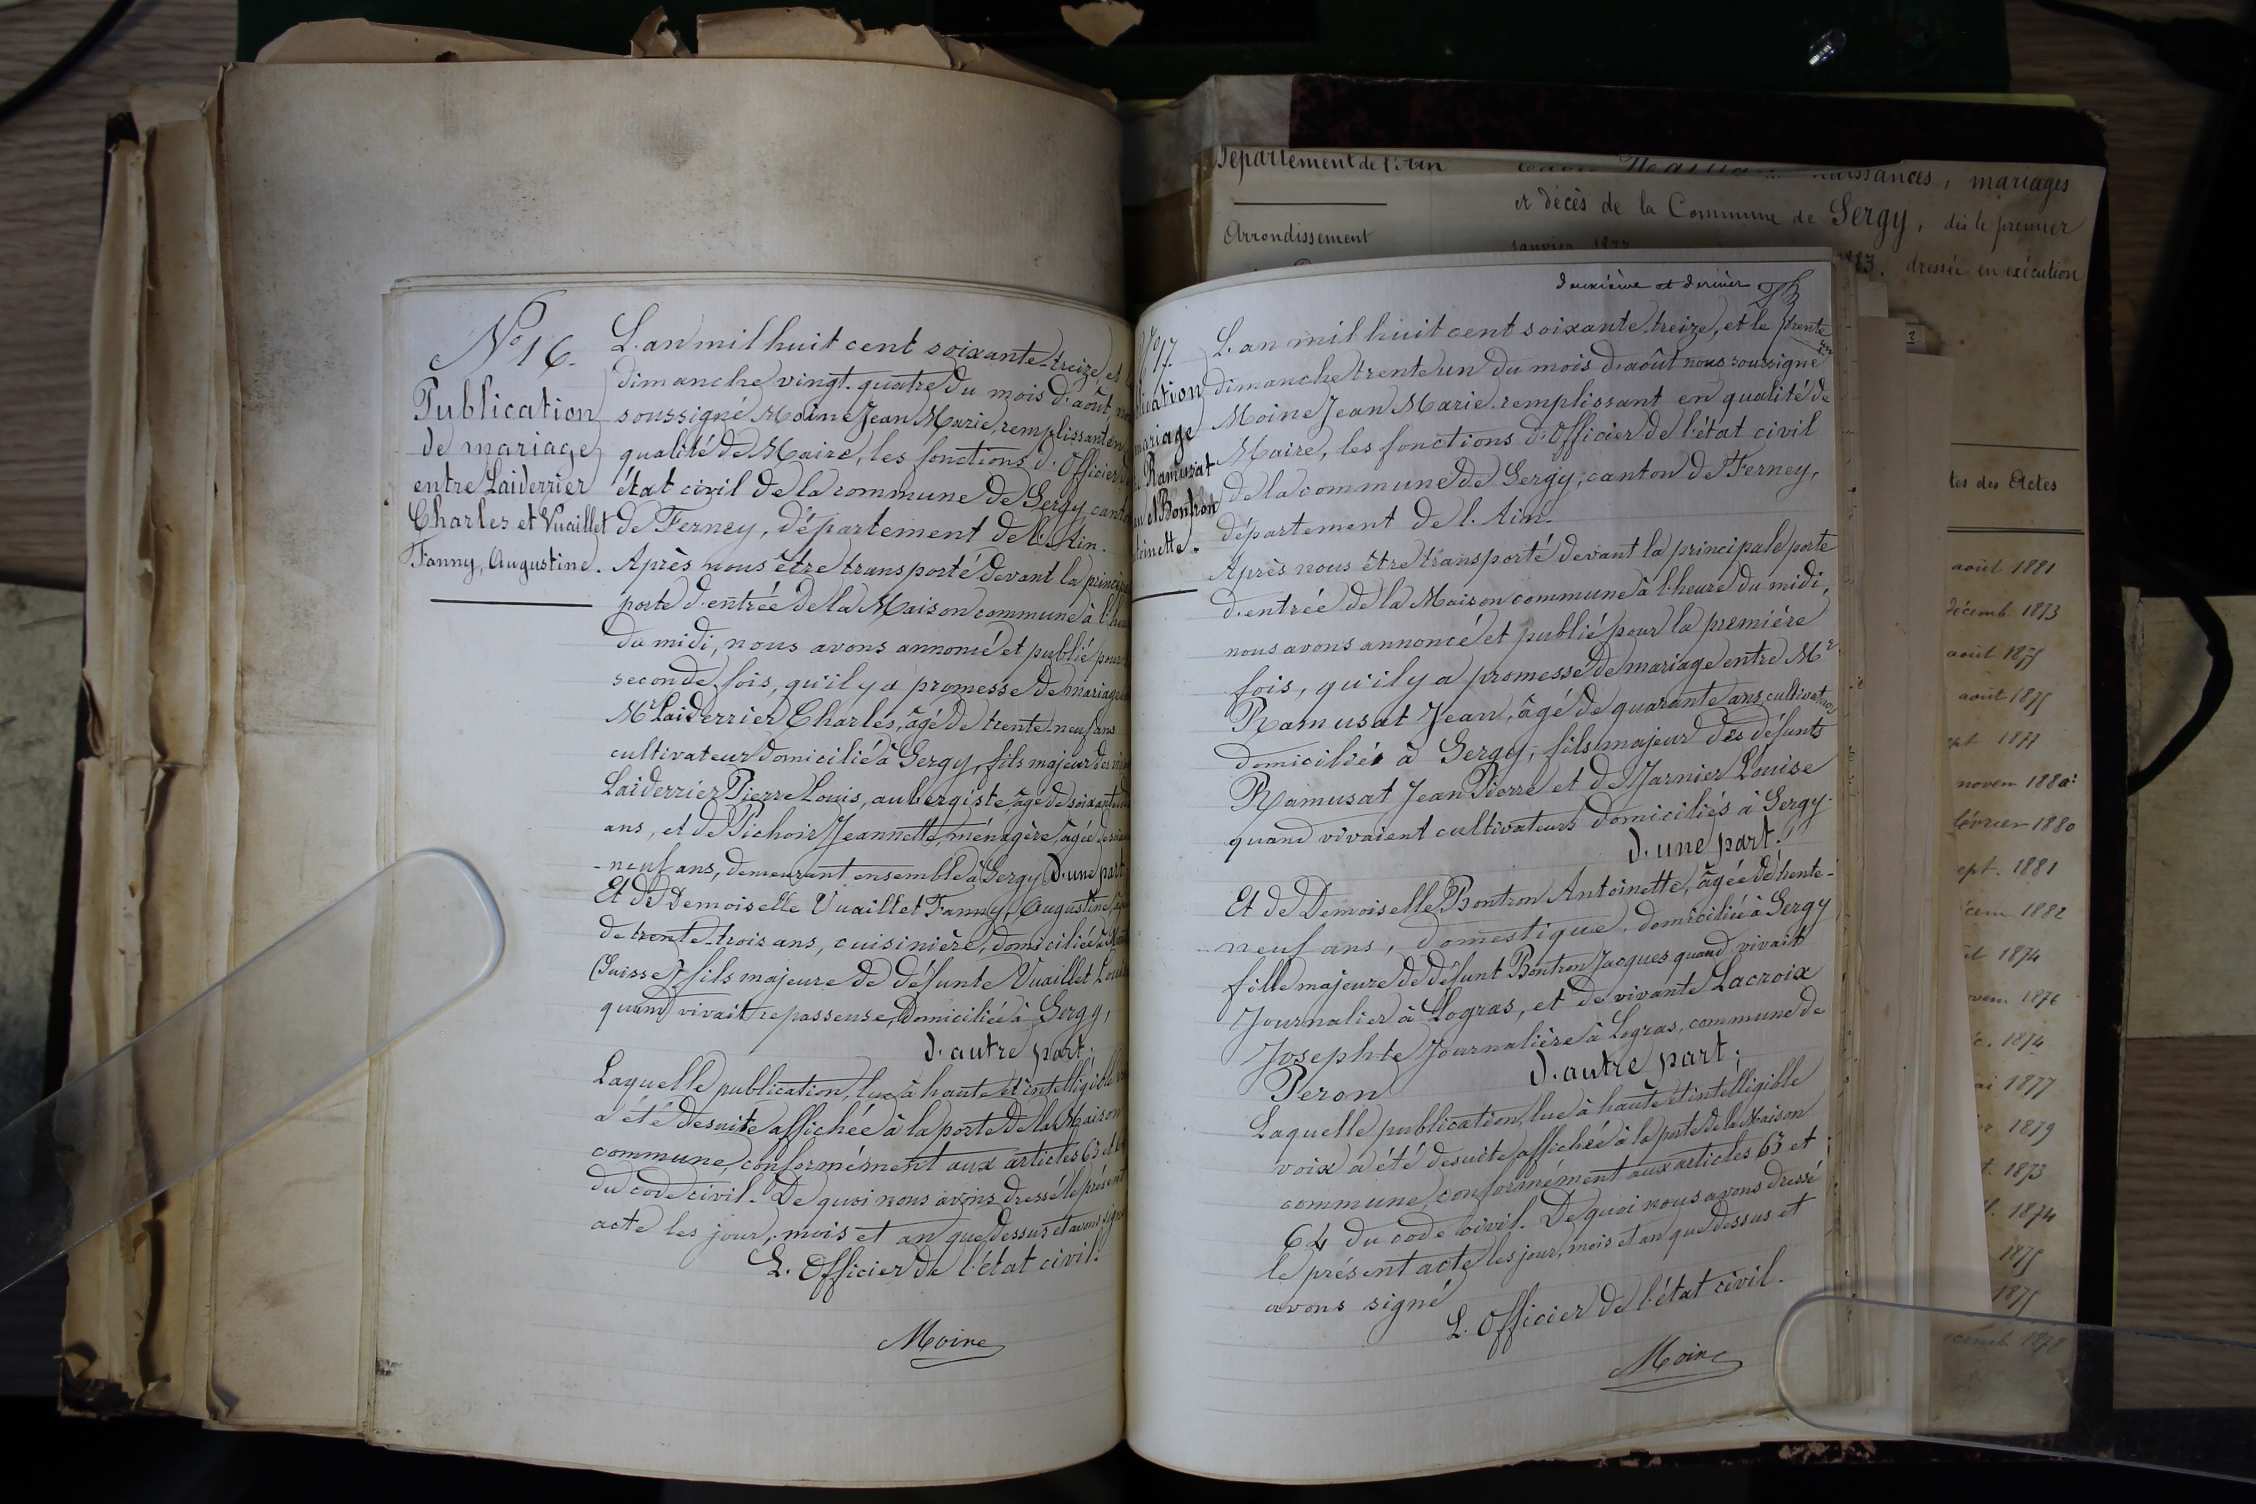 No 16.
Publication
de mariage
entre Laiderrier
Charles et Vuaillet
Fanny, Augustine.
L'an mil huit cent soixante-treize et
dimanche vingt-quatre du mois d'août
soussigné Moine Jean Marie, remplissant en
qualité de Maire, les fonctions d'Officier
état civil de la commune de Sergy, canton
de Ferney, département de l'Ain.
Après nous être transporté devant la
porte d'entrée de la Maison commune à
du midi, nous avons annoncé et publié pour
seconde fois, qu'il y a promesse de mariage
Mr Laiderrier Charles, âgé de trente-neuf ans
cultivateur domicilié à Sergy, fils majeur des
Laiderrier Pierre Louis, aubergiste, âgé de
ans, et de Pichoir Jeannette, ménagère, âgée de
-neuf ans, demeurant ensemble à Sergy d'une part
Et de Demoiselle Vuaillet Fanny, Augustine,
de trente-trois ans, cuisinière, domiciliée à
(Suisse) fils majeure de défunte Vuaillet
quand vivait repasseuse, domiciliée à Sergy,
d'autre part.
Laquelle publication, lue à haute et intelligible
a été desuite affichée à la porte de la Maison
commune, conformément aux articles 63 et
du code civil. De quoi nous avons dressé le présent
acte les jour, mois et an que dessus et avons signé
L'Officier de l'état civil.
Moine
deuxième et dernier
17
mariage
Ramusat
et Bontron
L'an mil huit cent soixante-treize, et le trente
dimanche trente un du mois d'août nous soussigné
Moine Jean Marie remplissant en qualité de
Maire, les fonctions d'Officier de l'état civil
de la commune de Sergy, canton de Ferney,
département de l'Ain.
Après nous être transporté devant la principale porte
d'entrée de la Maison commune à l'heure du midi,
nous avons annoncé et publié pour la première
fois, qu'il y a promesse de mariage entre Mr
Ramusat Jean, âgé de quarante ans, cultivateur
domicilié à Sergy, fils majeur des défunts
Ramusat Jean Pierre et de Marnier Louise
quand vivaient cultivateurs domiciliés à Sergy
d'une part.
Et de Demoiselle Bontron Antoinette, âgée de trente-
neuf ans, domestique, domiciliée à Sergy
fille majeure de défunt Bontron Jacques quand vivait
Journalier à Logras, et de vivante Lacroix
Josephte Journalière à Logras, commune de
Peron d'autre part.
Laquelle publication, lue à haute et intelligible
voix a été desuite affichée à la porte de la Maison
commune, conformément aux articles 63 et
64 du code civil. De quoi nous avons dressé
le présent acte les jour, mois et an que dessus et
avons signé
L'Officier de l'état civil.
Moine
Département de l'Ain
Arrondissement
naissances, mariages
et décès de la Commune de Sergy, dès le premier
janvier
dressée en exécution
des Actes
août 1881
décemb. 1873
août 1875
août 1875
sept. 1877
novem 1880
février 1880
sept. 1881
1882
1874
1876
1874
1877
1879
1873
1874
1875
1875
1878